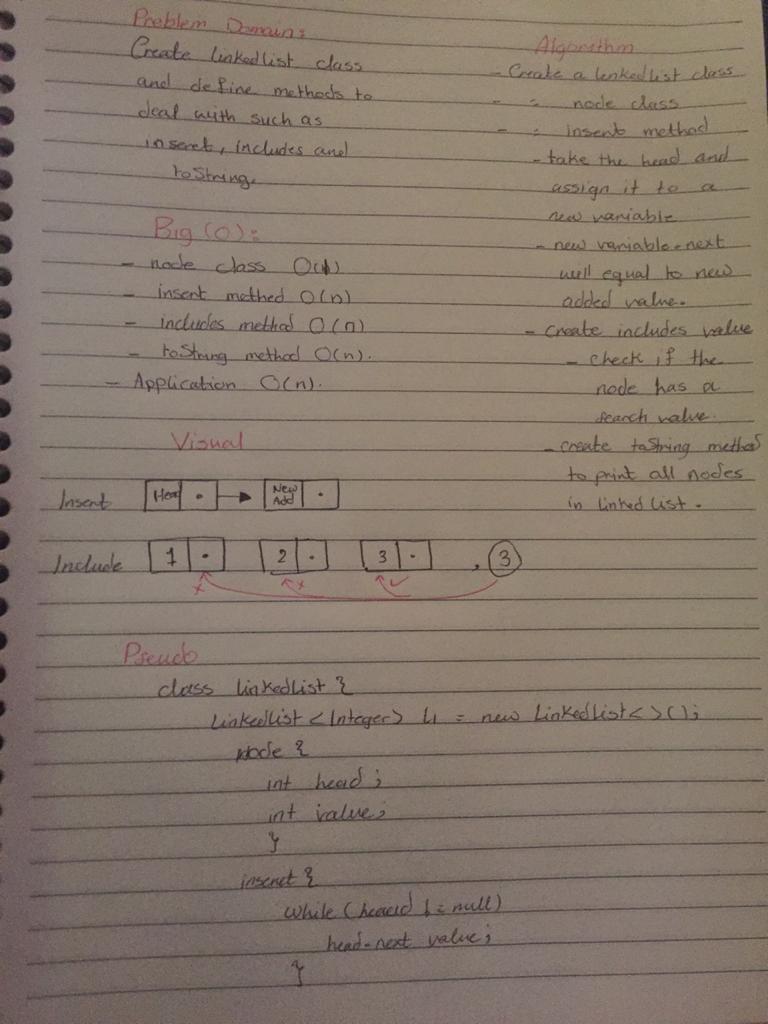 Problem Domain:
Create linkedlist class
and define methods to
deal with such as
insert, includes and
toString.
Big (O):
- node class O(1)
- insert method O(n)
- includes method O(n)
- toString method O(n).
- Application O(n).
Visual
Insert Head • New Add •
Include 1 • 2 • 3 • . 3
x x ✓
Algorithm
- Create a linkedlist class
- = node class
- = insert method
- take the head and
assign it to a
new variable
- new variable.next
will equal to new
added value.
- create includes value
- check if the
node has a
search value.
- create toString method
to print all nodes
in linked list.
Pseudo
class linkedlist {
LinkedList <Integer> L1 = new LinkedList< >();
Node {
int head;
int value;
}
insert {
while (head != null)
head.next value;
}